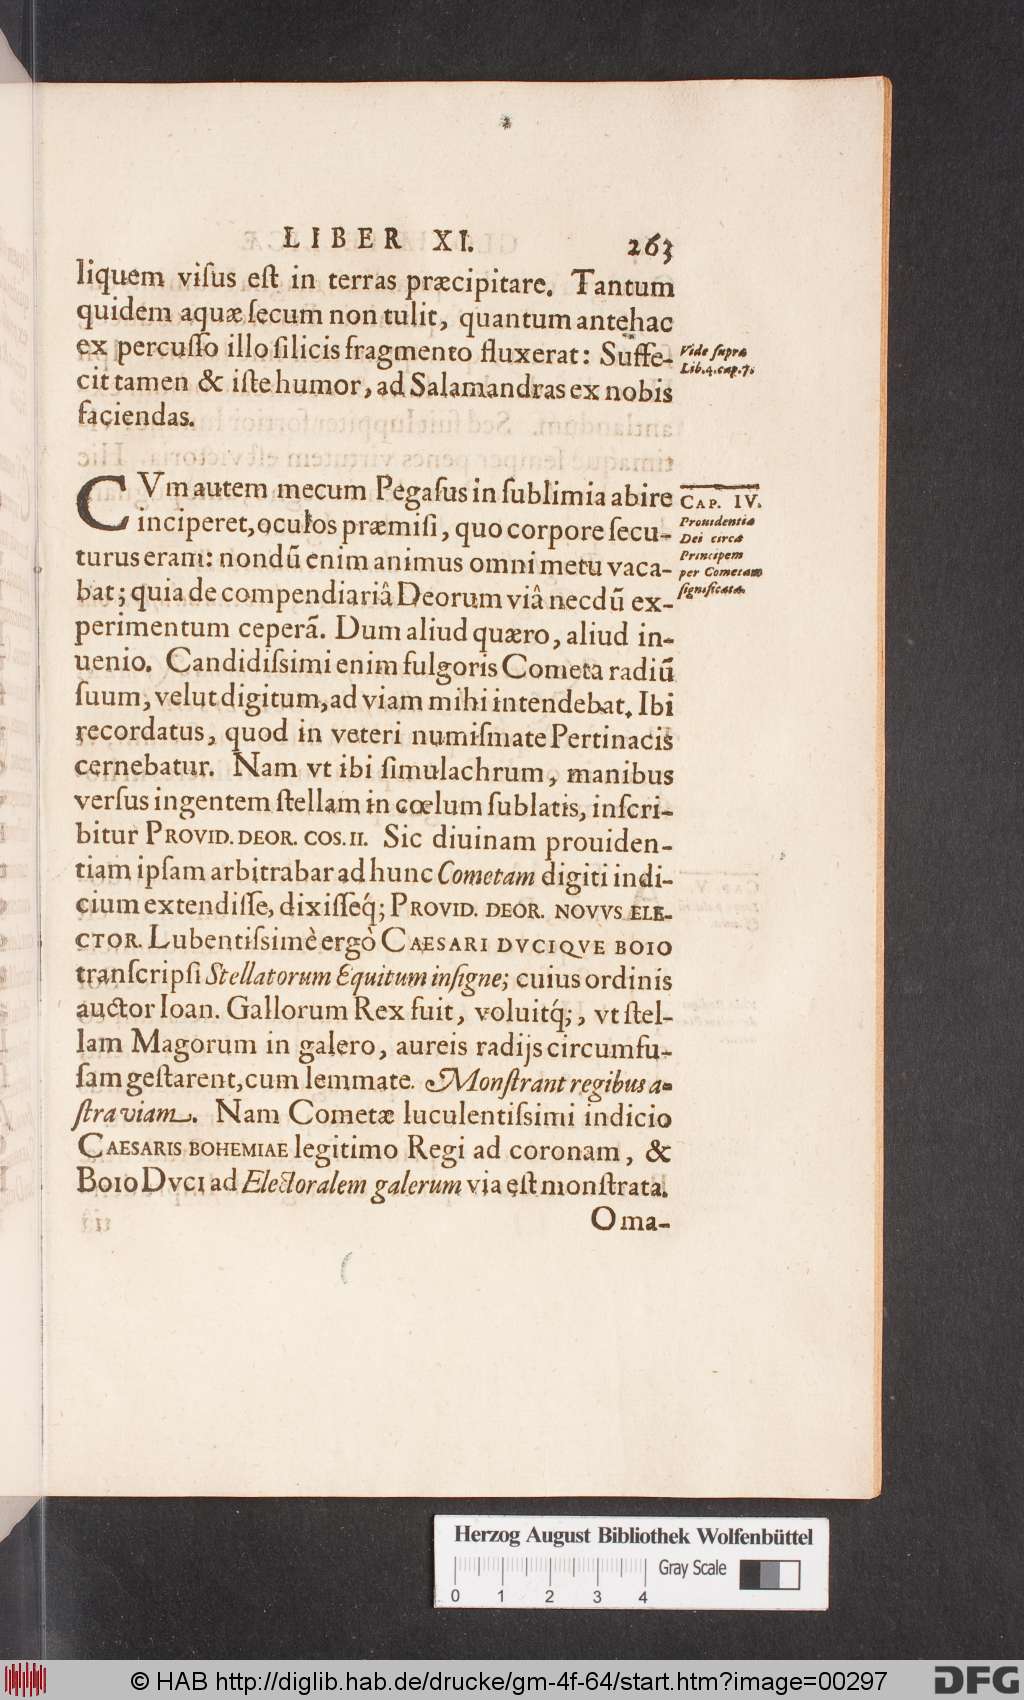 LIBER XI. 263
liquem viſus eſt in terras præcipitare. Tantum
quidem aquæ ſecum non tulit, quantum antehac
ex percuſſo illo ſilicis fragmento fluxerat: Suffe-
cit tamen & iſte humor, ad Salamandras ex nobis
faciendas.
Vide ſupra
Lib. 4. cap. 7.
CVm autem mecum Pegaſus in ſublimia abire
inciperet, oculos præmiſi, quo corpore ſecu-
turus eram: nondũ enim animus omni metu vaca-
bat; quia de compendiariâ Deorum viâ necdũ ex-
perimentum ceperã. Dum aliud quæro, aliud in-
uenio. Candidiſsimi enim fulgoris Cometa radiũ
ſuum, velut digitum, ad viam mihi intendebat. Ibi
recordatus, quod in veteri numiſmate Pertinacis
cernebatur. Nam vt ibi ſimulachrum, manibus
verſus ingentem ſtellam in cœlum ſublatis, inſcri-
bitur PROVID. DEOR. COS. II. Sic diuinam prouiden-
tiam ipſam arbitrabar ad hunc Cometam digiti indi-
cium extendiſſe, dixiſſeq́; PROVID. DEOR. NOVVS ELE-
CTOR. Lubentiſsimè ergò CAESARI DVCIQVE BOIO
tranſcripſi Stellatorum Equitum inſigne; cuius ordinis
auctor Ioan. Gallorum Rex fuit, voluitq́;, vt ſtel-
lam Magorum in galero, aureis radijs circumfu-
ſam geſtarent, cum lemmate. Monſtrant regibus a-
ſtra viam. Nam Cometæ luculentiſsimi indicio
CAESARIS BOHEMIAE legitimo Regi ad coronam, &
BOIO DVCI ad Electoralem galerum via eſt monſtrata.
Oma-
CAP. IV.
Prouidentia
Dei circa
Principem
per Cometam
ſignificata.
Herzog August Bibliothek Wolfenbüttel
Gray Scale
0 1 2 3 4
© HAB http://diglib.hab.de/drucke/gm-4f-64/start.htm?image=00297
DFG